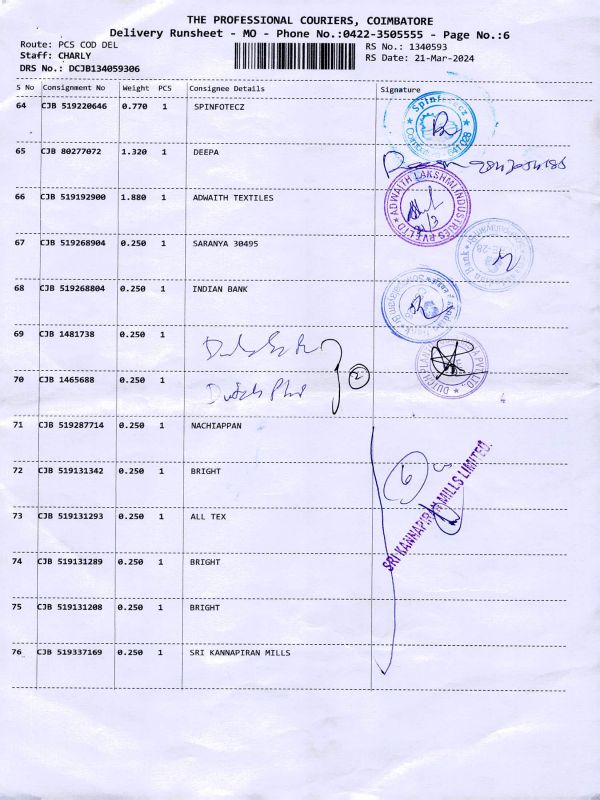 THE PROFESSIONAL COURIERS, COIMBATORE
Delivery Runsheet - MO - Phone No.:0422-3505555 - Page No.:6
Route: PCS COD DEL
Staff: CHARLY
DRS No.: DCJB134059306
RS No.: 1340593
RS Date: 21-Mar-2024
S No Consignment No Weight PCS Consignee Details Signature
64 CJB 519220646 0.770 1 SPINFOTECZ
Spinfotecz
641 028
65 CJB 80277072 1.320 1 DEEPA
66 CJB 519192900 1.880 1 ADWAITH TEXTILES
ADWAITH LAKSHMI INDUSTRIES PVT. LTD
67 CJB 519268904 0.250 1 SARANYA 30495
68 CJB 519268804 0.250 1 INDIAN BANK
69 CJB 1481738 0.250 1
70 CJB 1465688 0.250 1 Dutch
2
71 CJB 519287714 0.250 1 NACHIAPPAN
72 CJB 519131342 0.250 1 BRIGHT
6
SRI KANNAPIRAN MILLS LIMITED.
73 CJB 519131293 0.250 1 ALL TEX
74 CJB 519131289 0.250 1 BRIGHT
75 CJB 519131208 0.250 1 BRIGHT
76 CJB 519337169 0.250 1 SRI KANNAPIRAN MILLS